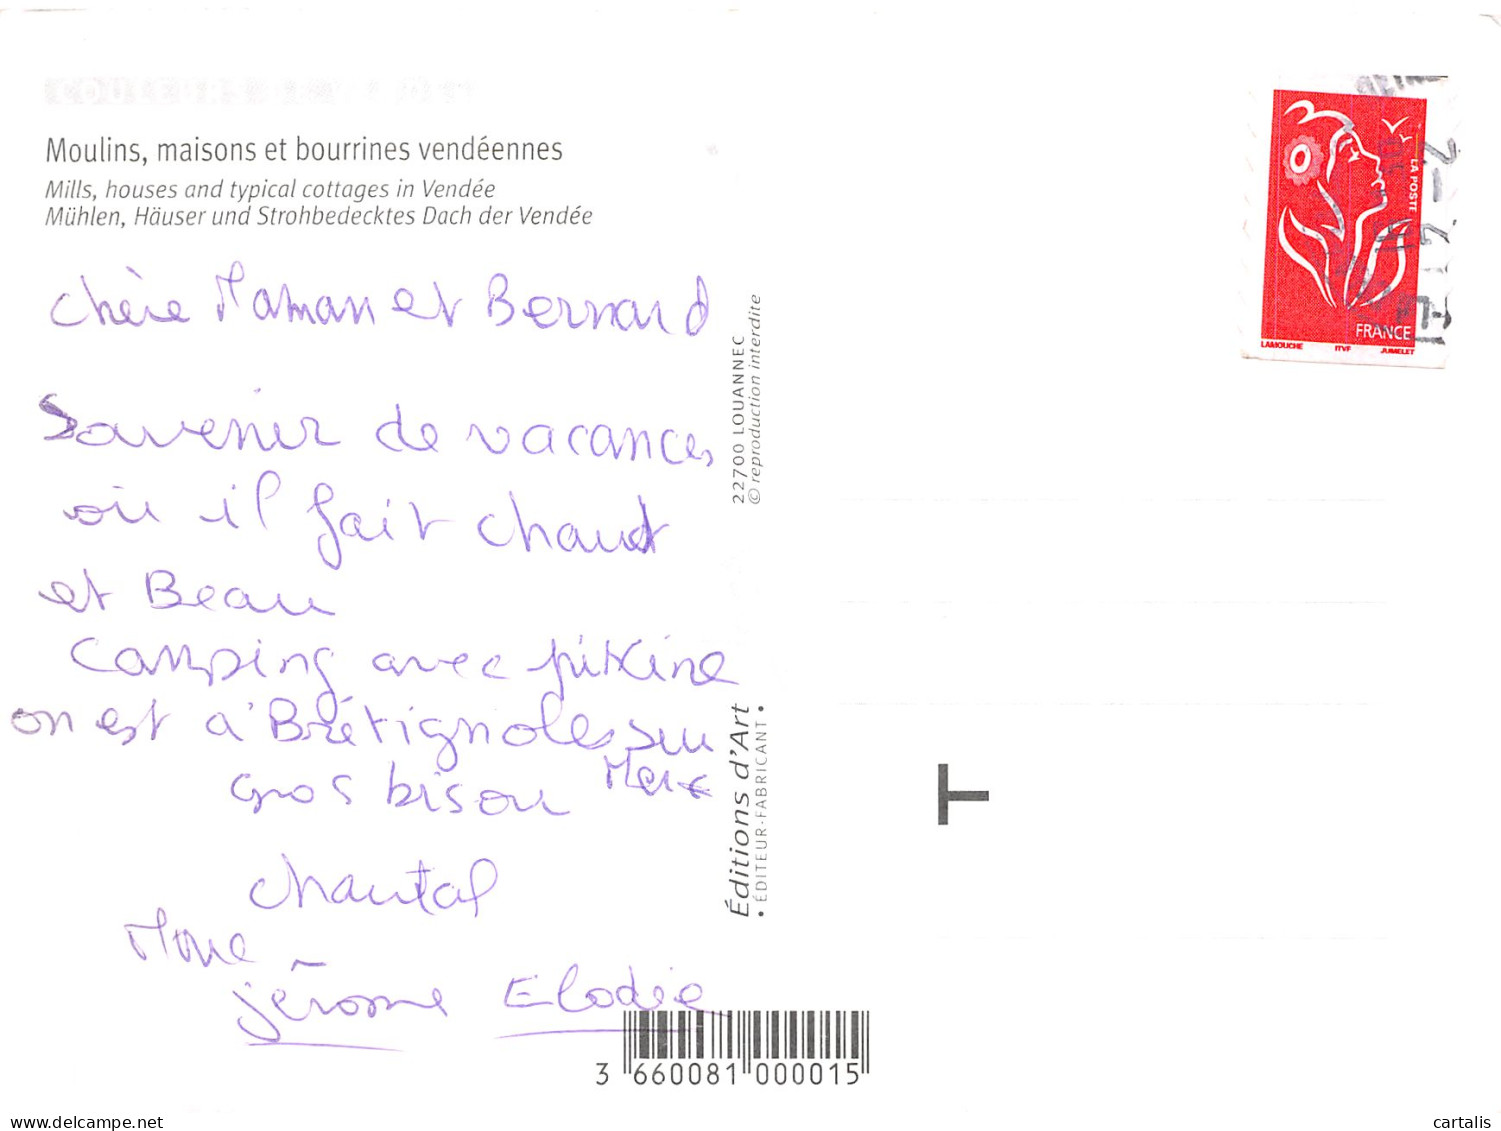 Moulins, maisons et bourrines vendéennes
Mills, houses and typical cottages in Vendée
Mühlen, Häuser und Strohbedecktes Dach der Vendée
chère Maman et Bernard
Souvenir de vacances
où il fait chaud
et Beau
Camping avec piscine
on est à Brétignolles sur
Mer
gros bisou
chantal
jérome Elodie
22700 LOUANNEC
© reproduction interdite
Éditions d'Art
• ÉDITEUR-FABRICANT •
LA POSTE
FRANCE
LAMOUCHE ITVF JUMELET
T
3 660081 000015
cartalis
delcampe.net